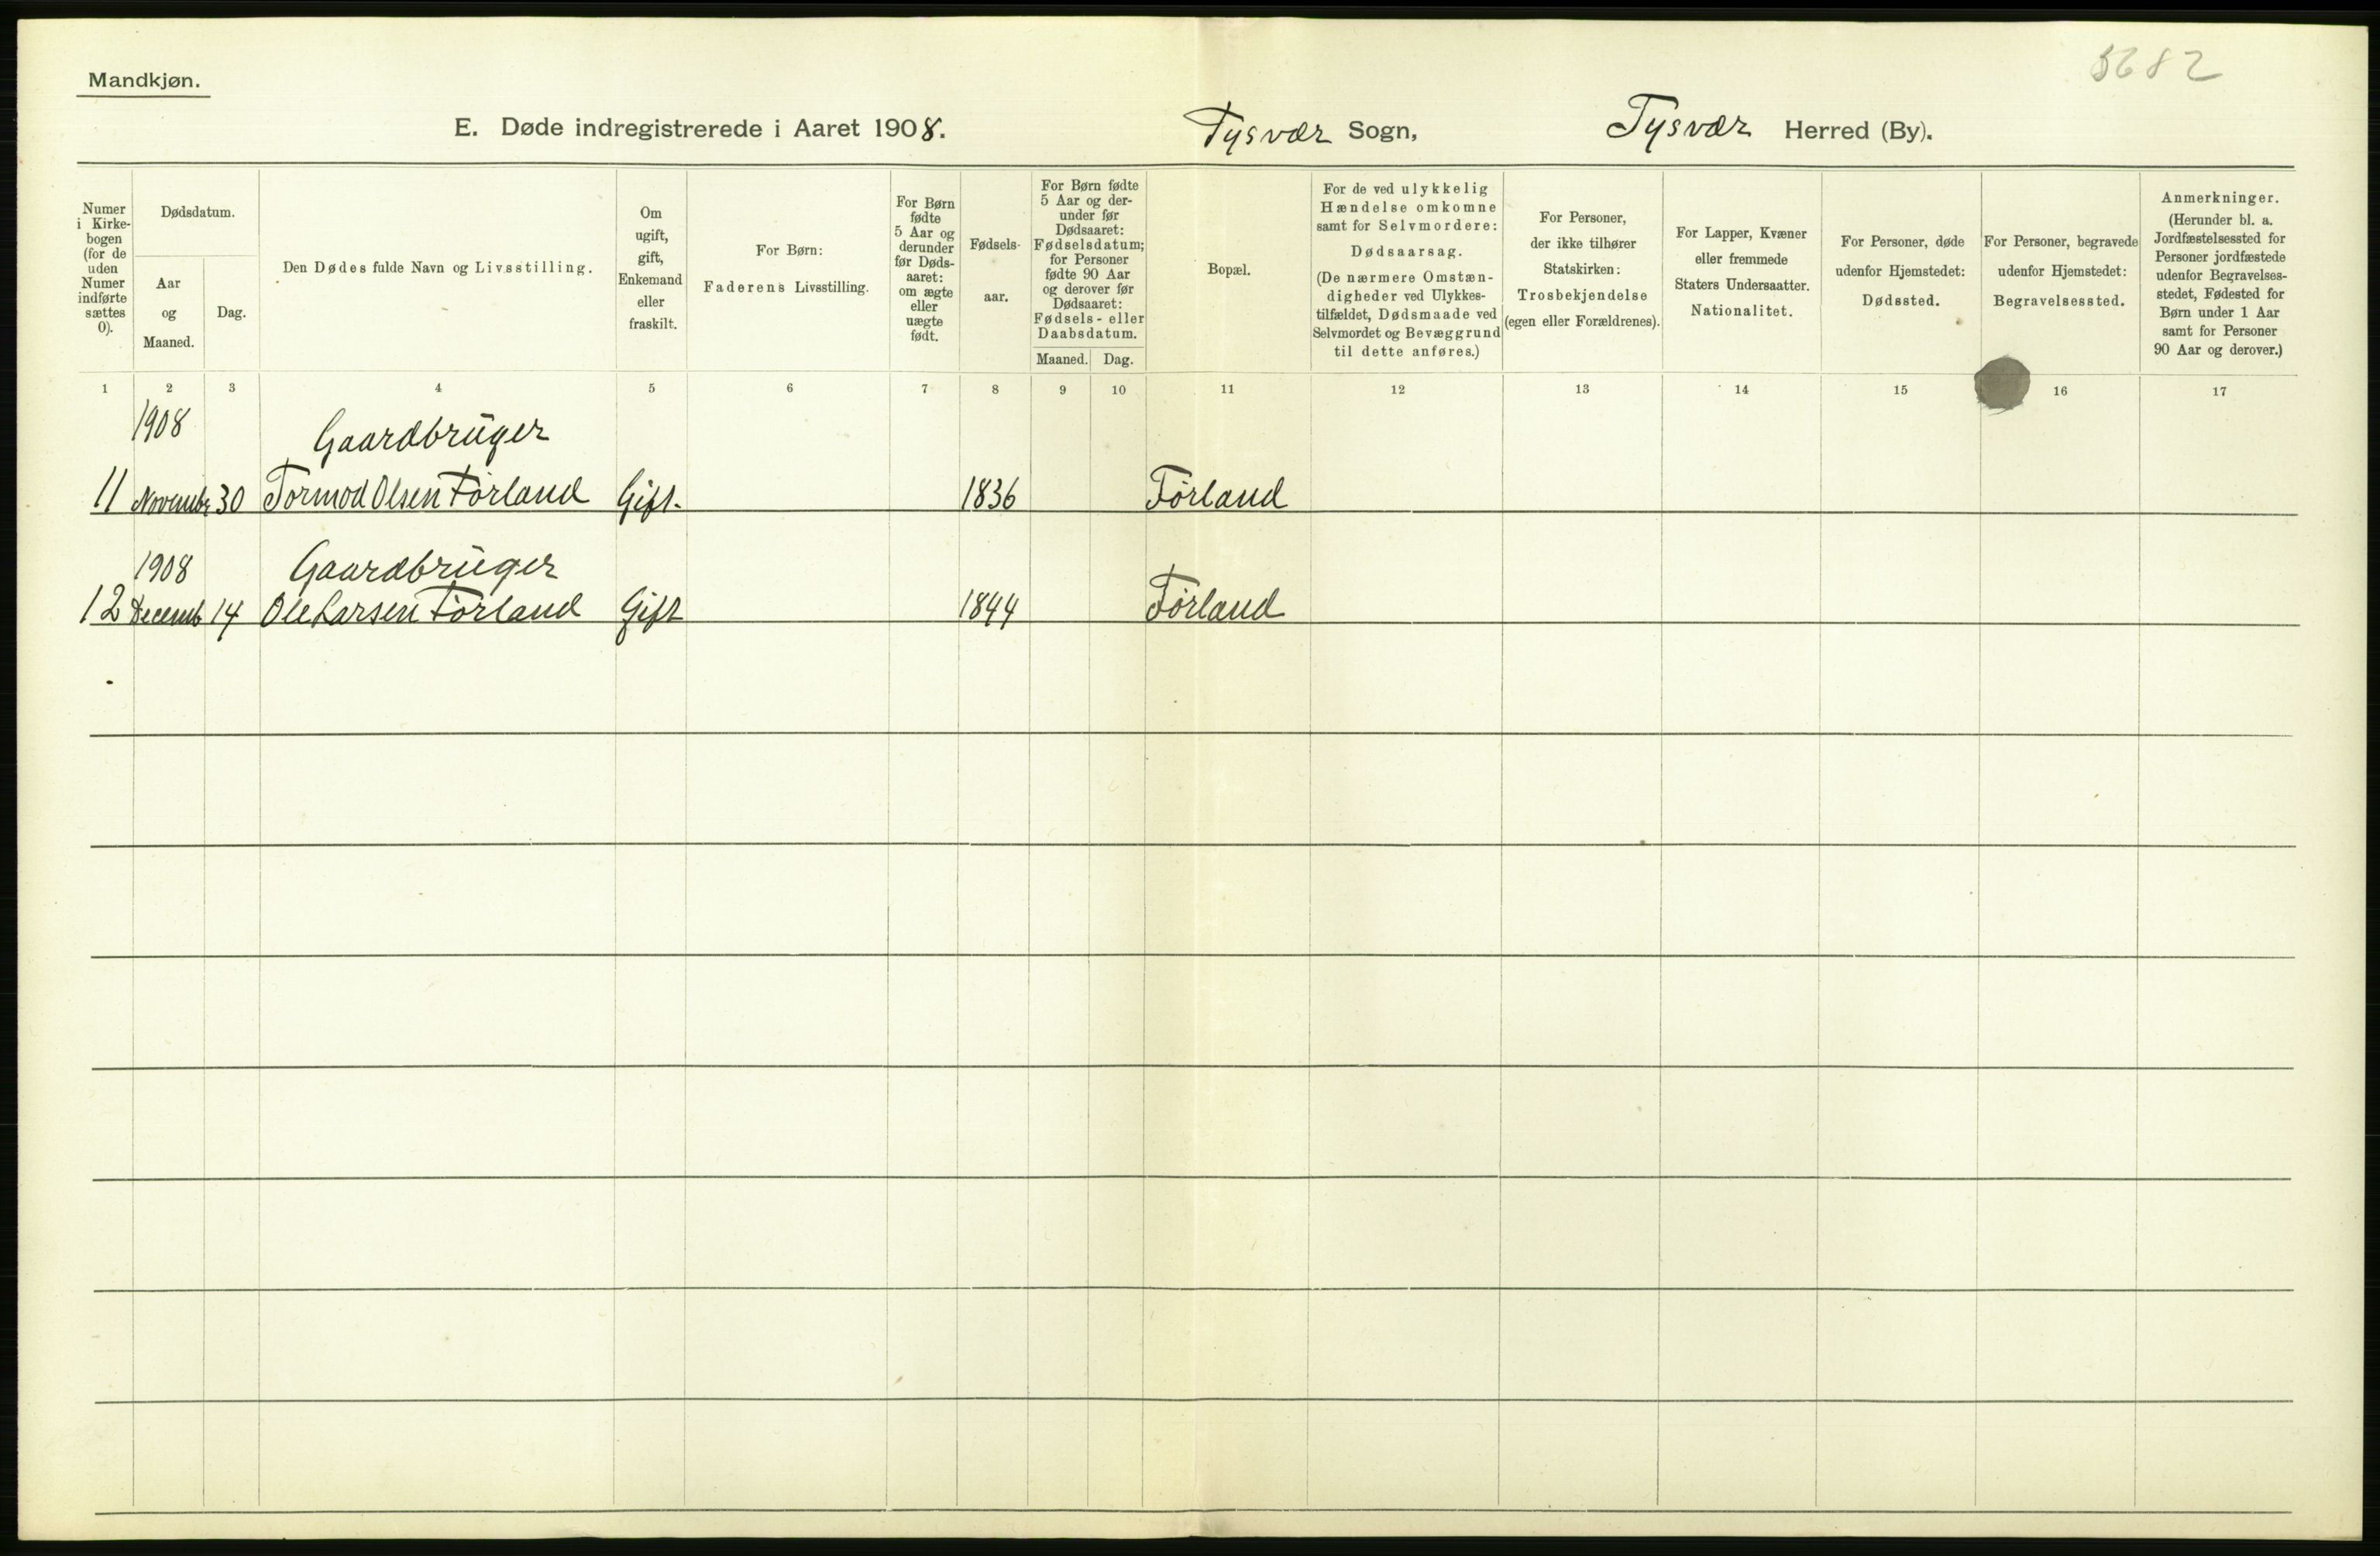 5682
Mandkjøn.
E. Døde indregistrerede i Aaret 1908. Tysvær Sogn, Tysvær Herred (By).
Numer
i Kirke-
bogen
(for de
uden
Numer
indførte
sættes
0).
Dødsdatum.
Aar
og
Maaned.
Dag.
Den Dødes fulde Navn og Livsstilling.
Om
ugift,
gift,
Enkemand
eller
fraskilt.
For Børn:
Faderens Livsstilling.
For Børn
fødte
5 Aar og
derunder
før Døds-
aaret:
om ægte
eller
uægte
født.
Fødsels-
aar.
For Børn fødte
5 Aar og der-
under før
Dødsaaret:
Fødselsdatum;
for Personer
fødte 90 Aar
og derover før
Dødsaaret:
Fødsels- eller
Daabsdatum.
Maaned. Dag.
Bopæl.
For de ved ulykkelig
Hændelse omkomne
samt for Selvmordere:
Dødsaarsag.
(De nærmere Omstæn-
digheder ved Ulykkes-
tilfældet, Dødsmaade ved
Selvmordet og Bevæggrund
til dette anføres.)
For Personer,
der ikke tilhører
Statskirken:
Trosbekjendelse
(egen eller Forældrenes).
For Lapper, Kvæner
eller fremmede
Staters Undersaatter.
Nationalitet.
For Personer, døde
udenfor Hjemstedet:
Dødssted.
For Personer, begravede
udenfor Hjemstedet:
Begravelsessted.
Anmerkninger.
(Herunder bl. a.
Jordfæstelsessted for
Personer jordfæstede
udenfor Begravelses-
stedet, Fødested for
Børn under 1 Aar
samt for Personer
90 Aar og derover.)
1 2 3 4 5 6 7 8 9 10 11 12 13 14 15 16 17
1908 Gaardbrüger
11 Novembr 30 Tormod Olsen Førland Gift. 1836 Førland
1908 Gaardbrüger
12 Decemb 14 Ole Larsen Førland Gift 1844 Førland